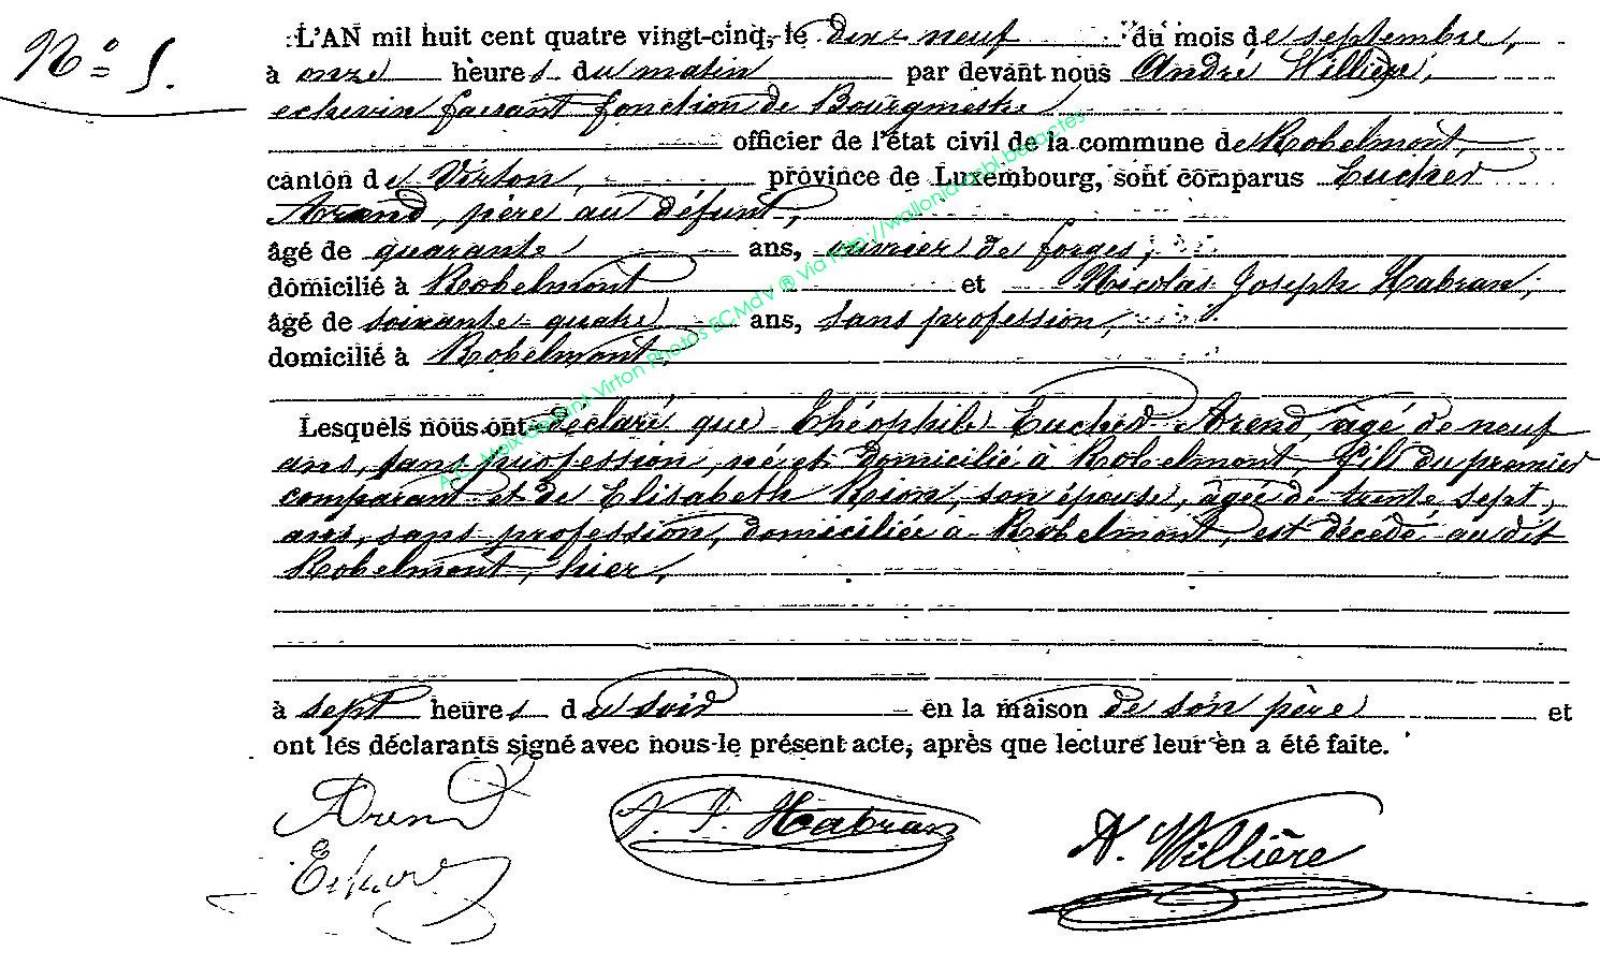 N° 5.
L'AN mil huit cent quatre vingt-cinq, le dix neuf du mois de septembre,
à onze heures du matin par devant nous André Willière,
echevin faisant fonction de Bourgmestre
officier de l'état civil de la commune de Robelmont,
canton de Virton, province de Luxembourg, sont comparus Eucher
Arend, père au défunt,
âgé de quarante ans, ouvrier de forges,
domicilié à Robelmont et Nicolas Joseph Habran,
âgé de soixante quatre ans, sans profession,
domicilié à Robelmont
Lesquels nous ont déclaré que Théophile Eucher Arend, âgé de neuf
ans, sans profession, né et domicilié à Robelmont, fils du premier
comparant et de Elisabeth Rion, son épouse, âgée de trente sept
ans, sans profession, domiciliée à Robelmont, est décédé au dit
Robelmont, hier,
à sept heures du soir en la maison de son père et
ont les déclarants signé avec nous le présent acte, après que lecture leur en a été faite.
Arend
N. J. Habran
A. Willière
Virton Photos ECMdV ® Via http://wallonia-asbl.be/actes